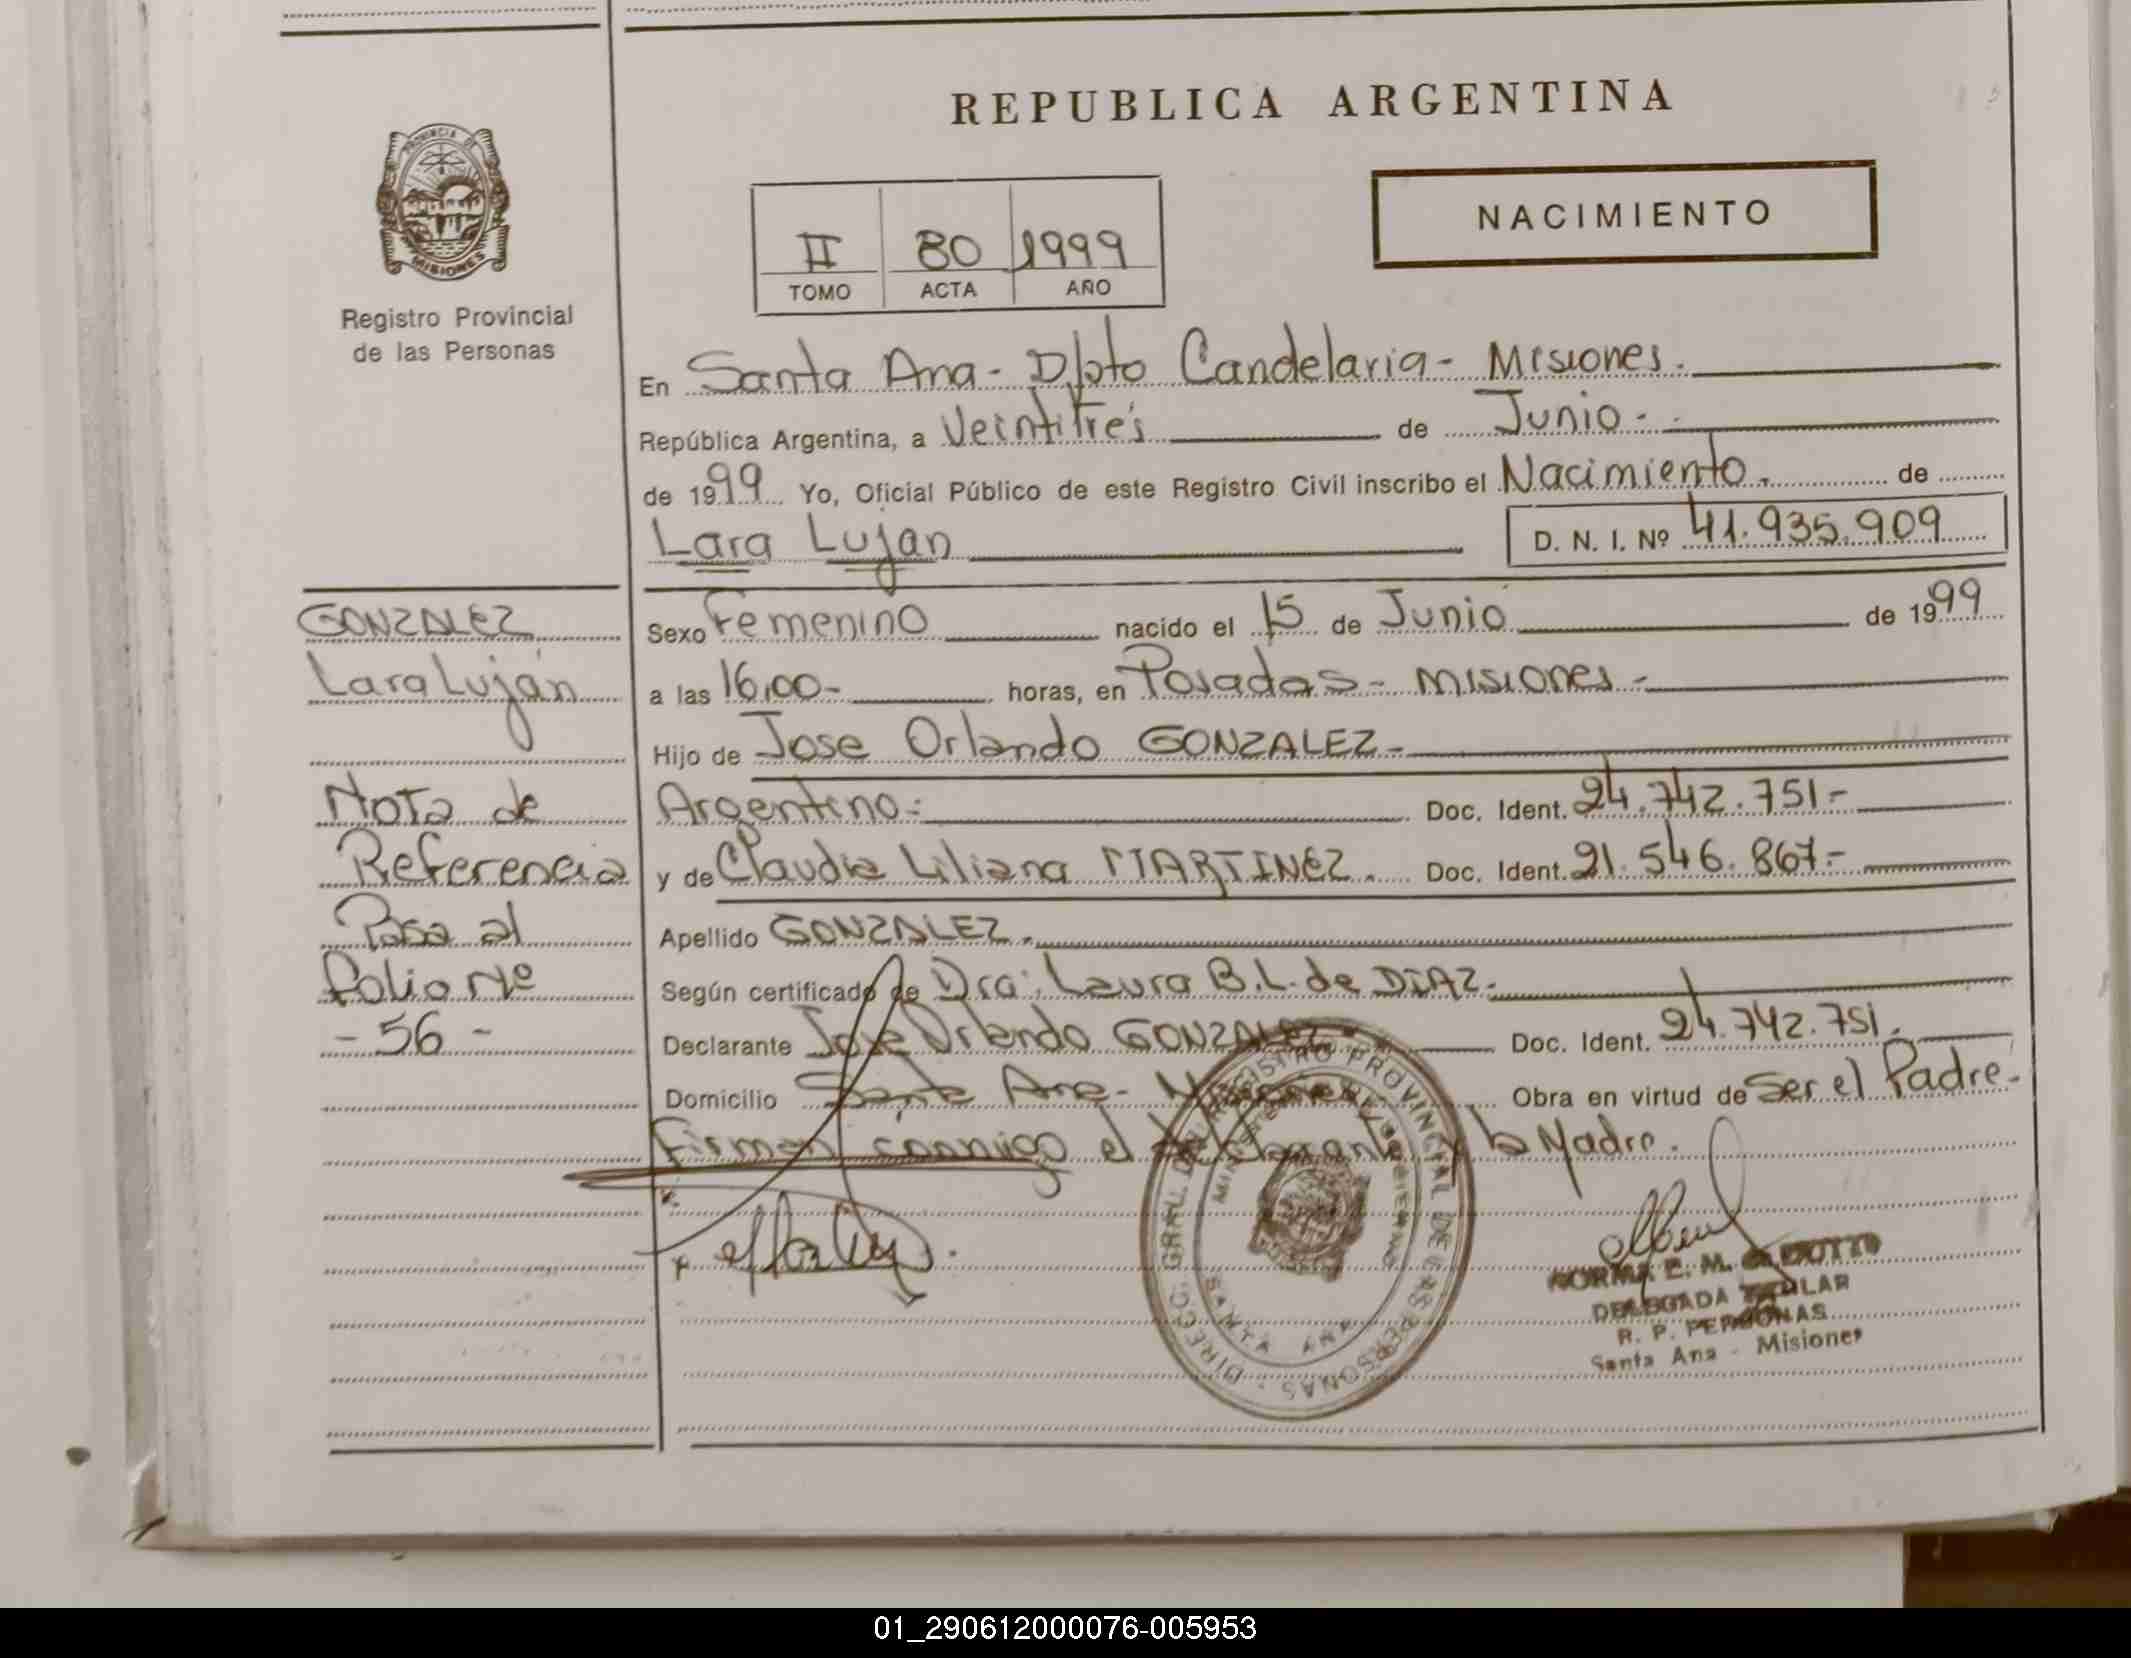 REPUBLICA ARGENTINA
PROVINCIA DE
MISIONES
Registro Provincial
de las Personas
NACIMIENTO
II 80 1999
TOMO ACTA AÑO
En Santa Ana - D/pto Candelaria - Misiones.
República Argentina, a Veintitrés de Junio -
de 1999 Yo, Oficial Público de este Registro Civil inscribo el Nacimiento. de
Lara Lujan D. N. I. Nº 41.935.909
GONZALEZ
Lara Luján
Nota de
Referencia
Pasa al
folio Nº
- 56 -
Sexo Femenino nacido el 15 de Junio de 1999
a las 16,00- horas, en Posadas - Misiones -
Hijo de Jose Orlando GONZALEZ -
Argentino - Doc. Ident. 24.742.751-
y de Claudia Liliana MARTINEZ. Doc. Ident. 21.546.867-
Apellido GONZALEZ.
Según certificado de Dra: Laura B.L. de DIAZ.
Declarante Jose Orlando GONZALEZ Doc. Ident. 24.742.751.
Domicilio Santa Ana - Misiones Obra en virtud de Ser el Padre-
Firman conmigo el declarante y la Madre.
DIRECC. GRAL. DEL REGISTRO PROVINCIAL DE LAS PERSONAS
MINISTERIO DE GOBIERNO
SANTA ANA
NORMA E. M.
DELEGADA TITULAR
R. P. PERSONAS
Santa Ana - Misiones
01_290612000076-005953